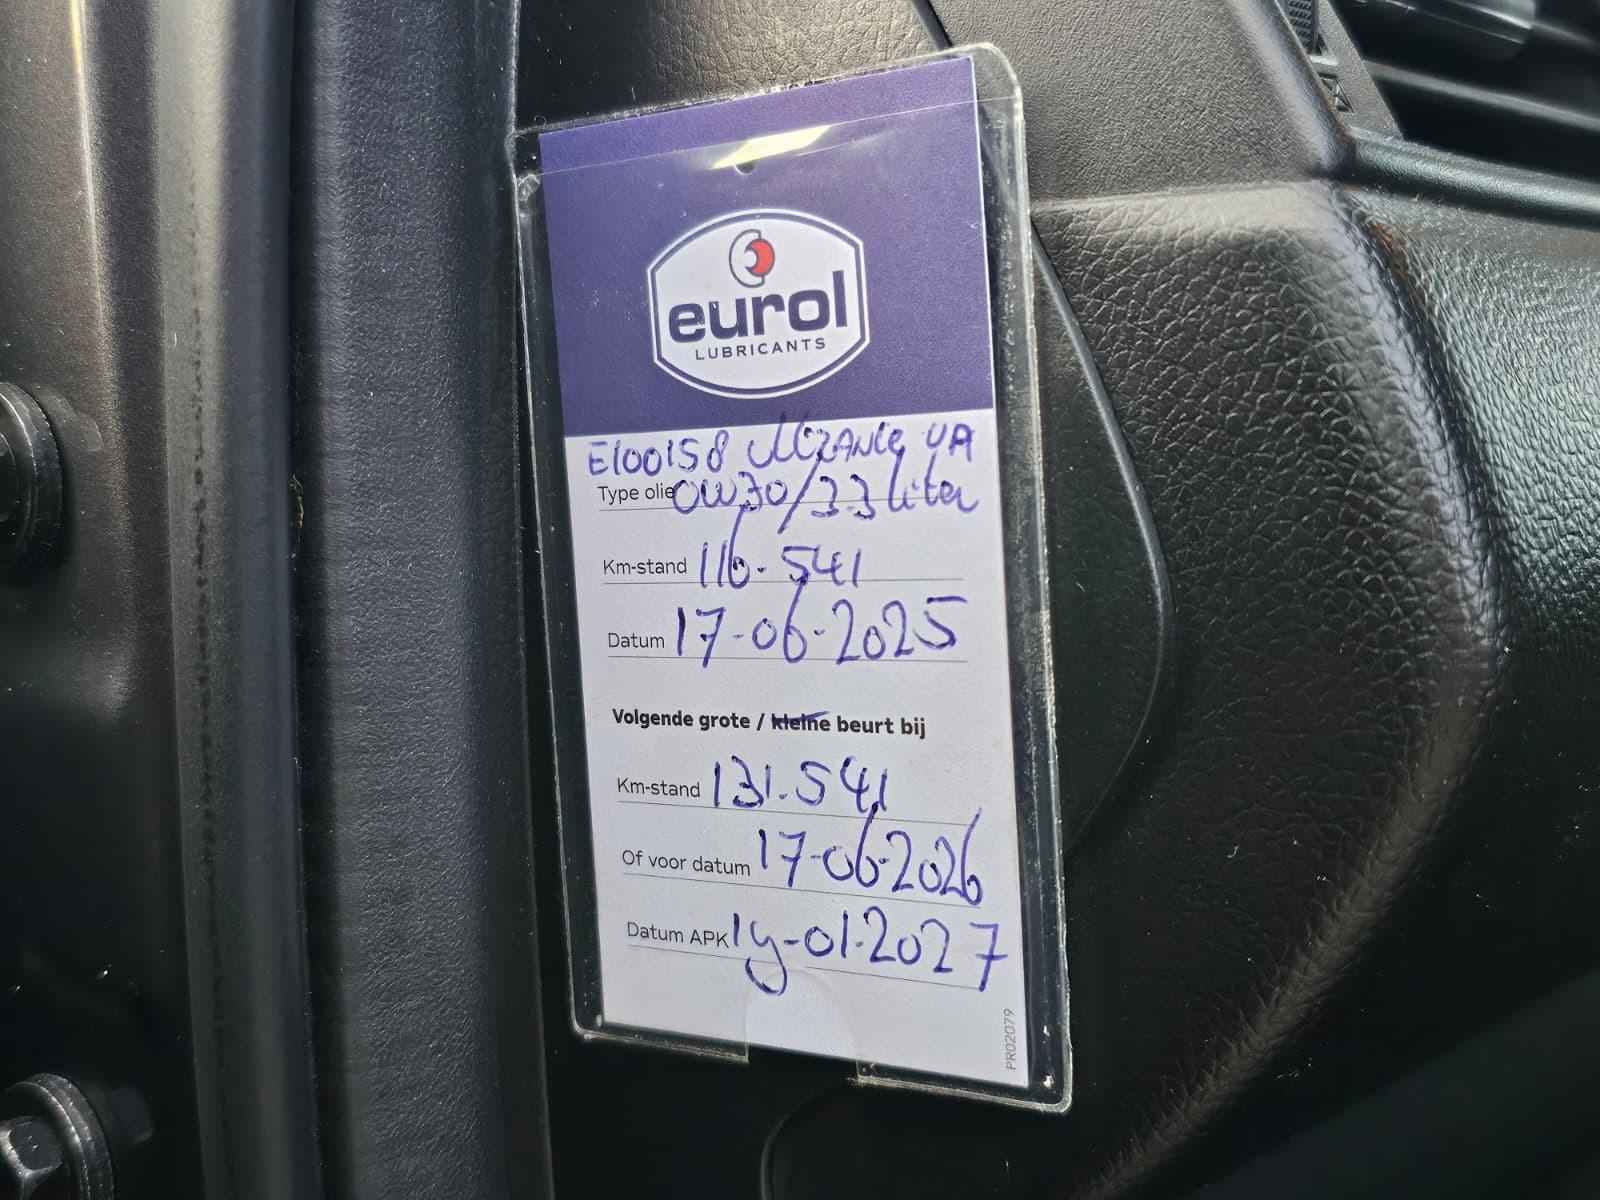 eurol
LUBRICANTS
E100158
Type olie 0W30/3.3 liter
Km-stand 116.541
Datum 17-06-2025
Volgende grote / kleine beurt bij
Km-stand 131.541
Of voor datum 17-06-2026
Datum APK 19-01-2027
PR02079